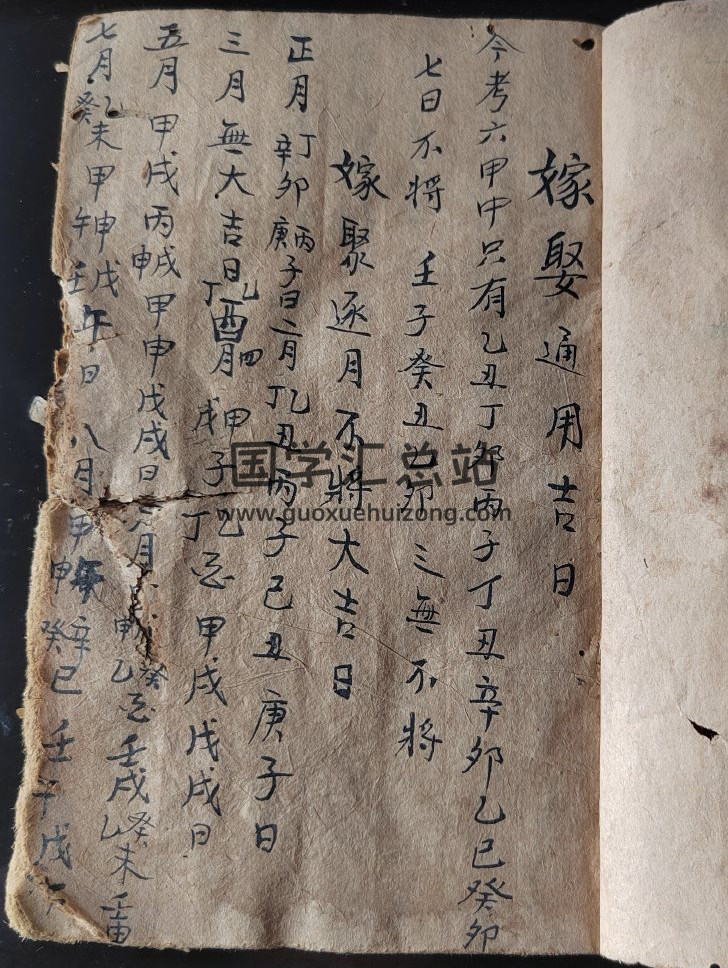 嫁娶通用吉日
今考六甲中只有乙丑丁卯丙子丁丑辛卯乙巳癸卯
七日不将 壬子癸丑乙卯 三無不将
嫁聚逐月不將大吉日
正月丁卯辛卯丙子庚子日二月乙丑丁丑丙子己丑庚子日
三月無大吉日乙酉丁酉四月甲子戊子乙丁忌甲戌戊戌日
五月甲戌丙戌申甲申戊戌日六月甲癸乙忌壬戌乙癸未壬
七月乙癸未甲申戊壬午日八月甲申辛癸巳壬午戊午
国学汇总站
www.guoxuehuizong.com